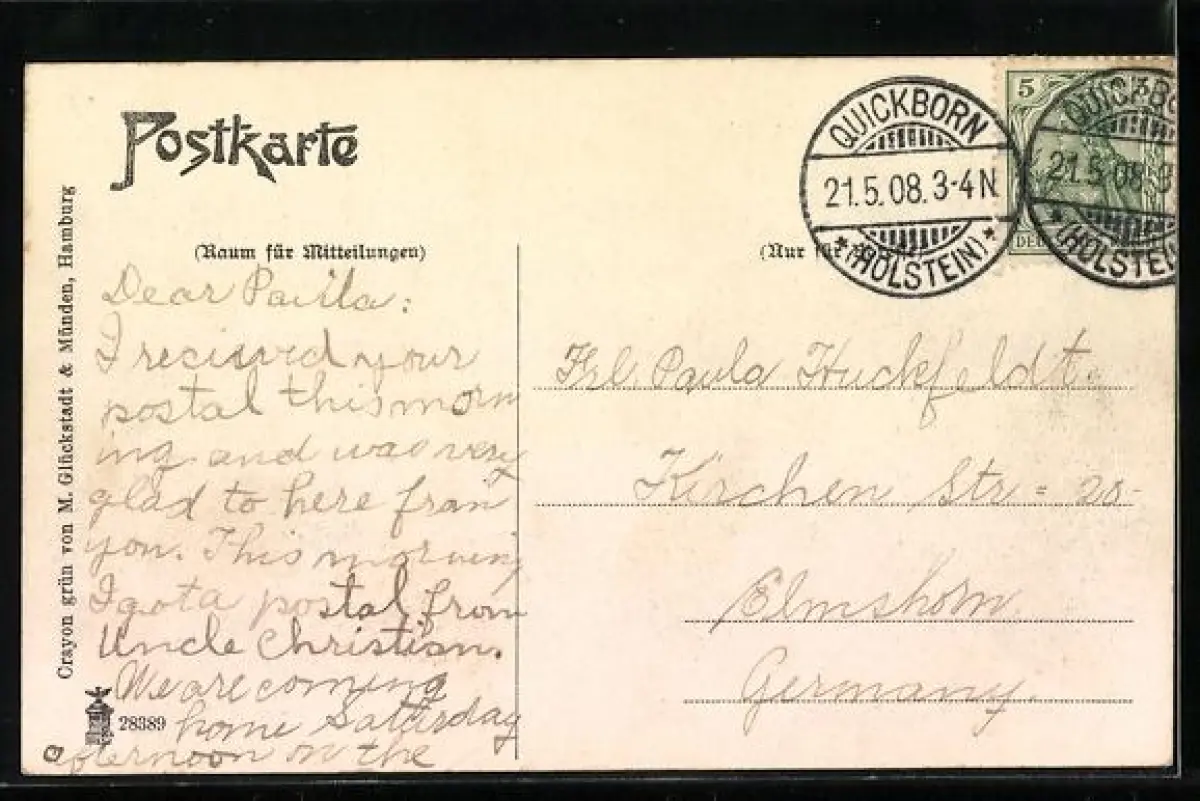 Postkarte
(Raum für Mitteilungen)
Dear Paula:
I recieved your
postal this morn
ing and was very
glad to here fram
you. This morning
I got a postal from
Uncle Christian.
We are coming
home Saturday
afternoon on the
Crayon grün von M. Glückstadt & Münden, Hamburg
28389
(Nur für
QUICKBORN
21.5.08.3-4N
*(HOLSTEIN)*
5
QUICKBO
21.5.08.3
*(HOLSTEIN
Frl. Paula Huckfeldt.
Kirchen Str = 20-
Elmshorn
Germany.